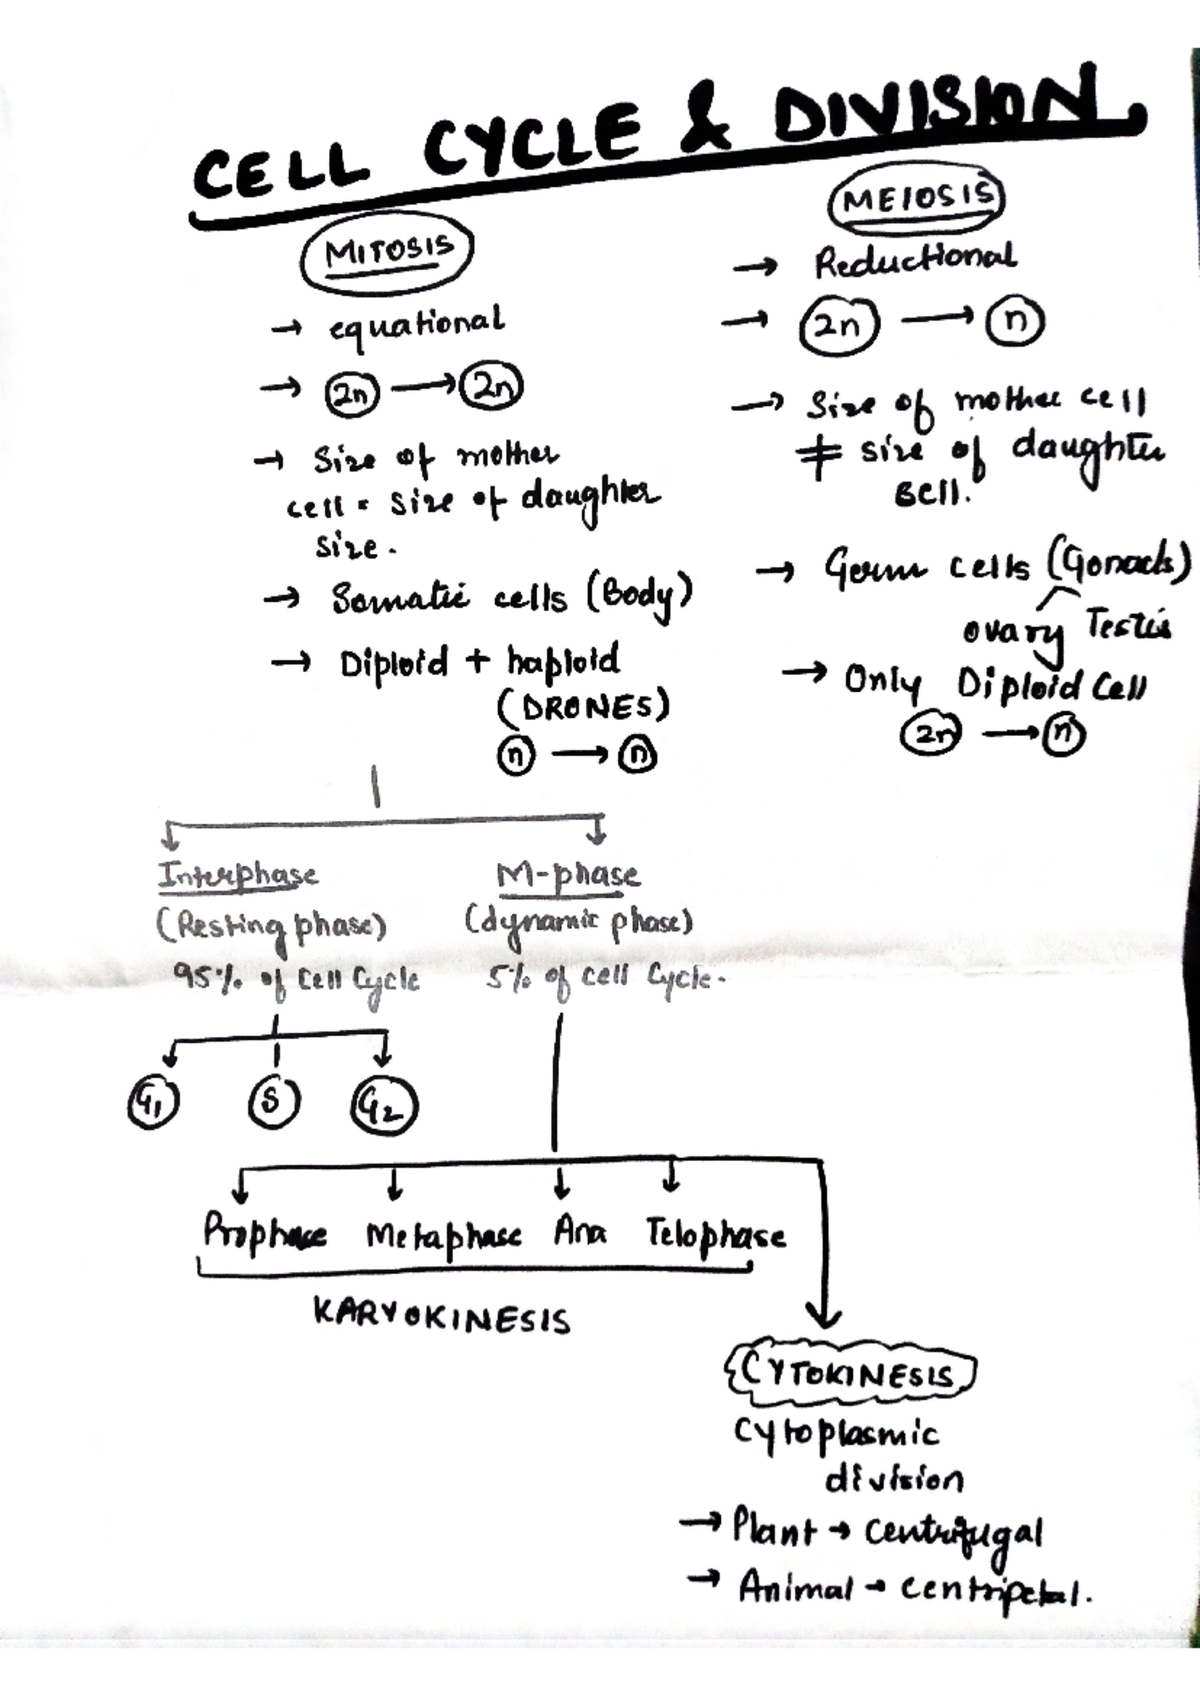 CELL CYCLE & DIVISION
MITOSIS
→ equational
→ 2n → 2n
→ Size of mother
cell = size of daughter
size.
→ Somatic cells (Body)
→ Diploid + haploid
(DRONES)
n → n
MEIOSIS
→ Reductional
→ 2n → n
→ Size of mother cell
≠ size of daughter
cell.
→ Germ cells (Gonads)
ovary Testis
→ Only Diploid Cell
2n → n
Interphase
(Resting phase)
95% of Cell Cycle
M-phase
(dynamic phase)
5% of cell Cycle.
G1 S G2
Prophase Metaphase Ana Telophase
KARYOKINESIS
CYTOKINESIS
Cytoplasmic
division
→ Plant → Centrifugal
→ Animal → centripetal.